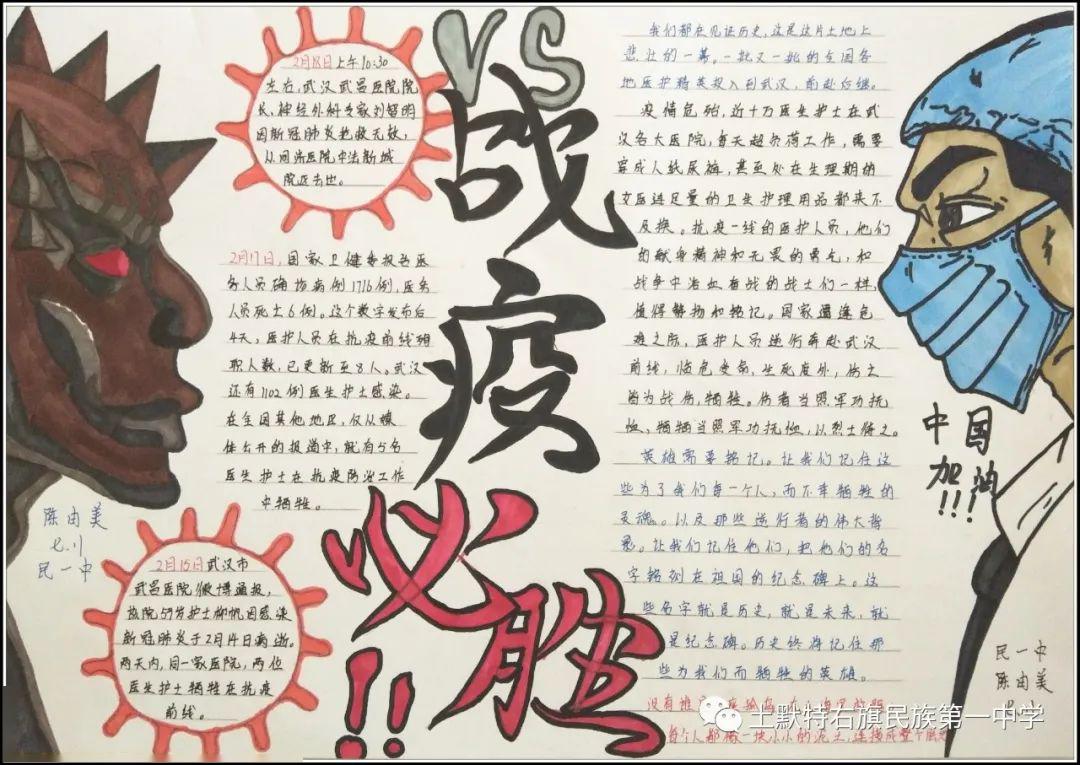 VS
战
疫
必
胜
!!
2月18日上午10:30
左右,武汉武昌医院院
长、神经外科专家刘智明
因新冠肺炎抢救无效,
从同济医院中法新城
院区去世。
2月17日,国家卫健委报告医
务人员确诊病例1716例,医务
人员死亡6例。这个数字发布后
4天,医护人员在抗疫前线殉
职人数,已更新至8人。武汉
还有1102例医生护士感染。
在全国其他地区,仅从媒
体公开的报道中,就有5名
医生护士在抗疫防治工作
中牺牲。
陈由美
七.11
民一中
2月15日武汉市
武昌医院微博通报,
该院59岁护士柳帆因感染
新冠肺炎于2月14日病逝。
两天内,同一家医院,两位
医生护士牺牲在抗疫
前线。
我们都在见证历史,这是这片土地上
悲壮的一幕。一批又一批的全国各
地医护精英投入到武汉,前赴后继。
疫情危殆,近十万医生护士在武
汉各大医院,每天超负荷工作,需要
穿成人纸尿裤,甚至处在生理期的
女医连足量的卫生护理用品都来不
及换。抗疫一线的医护人员,他们
的献身精神和无畏的勇气,和
战争中浴血奋战的战士们一样,
值得赞扬和铭记。国家遭逢危
难之际,医护人员逆行奔赴武汉
前线,临危受命,生死度外,伤亡
皆为战伤,牺牲。伤者当照军功抚
恤、牺牲当照军功抚恤,以烈士待之。
英雄需要铭记。让我们记住这
些为了我们每一个人,而不幸牺牲的
灵魂。以及那些逆行者的伟大背
影。让我们记住他们,把他们的名
字铭刻在祖国的纪念碑上。这
些名字就是历史,就是未来,就
是纪念碑。历史终将记住那
些为我们而牺牲的英雄。
没有谁
每个人都像一块小小的泥土,连接成整个陆地
中国
加油
!!!
民一中
陈由美
土默特右旗民族第一中学